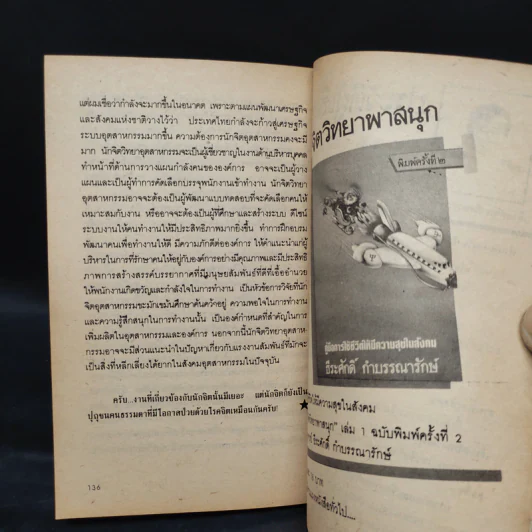 แต่ผมเชื่อว่ากำลังจะมากขึ้นในอนาคต เพราะตามแผนพัฒนาเศรษฐกิจ
และสังคมแห่งชาติวางไว้ว่า ประเทศไทยกำลังจะก้าวสู่เศรษฐกิจ
ระบบอุตสาหกรรมมากขึ้น ความต้องการนักจิตอุตสาหกรรมคงจะมี
มาก นักจิตวิทยาอุตสาหกรรมจะเป็นผู้เชี่ยวชาญในงานด้านบริหารบุคคล
ทำหน้าที่ด้านการวางแผนกำลังคนขององค์การ อาจจะเป็นผู้วาง
แผนและเป็นผู้ทำการคัดเลือกบรรจุพนักงานเข้าทำงาน นักจิตวิทยา
อุตสาหกรรมอาจจะต้องเป็นผู้พัฒนาแบบทดสอบที่จะคัดเลือกคนให้
เหมาะสมกับงาน หรืออาจจะต้องเป็นผู้ที่ศึกษาและสร้างระบบ ดีไซน์
ระบบงานให้คนทำงานที่มีประสิทธิภาพมากยิ่งขึ้น ทำการฝึกอบรม
พัฒนาคนเพื่อทำงานให้ดี มีความภักดีต่อองค์การ ให้คำแนะนำแก่ผู้
บริหารในการที่รักษาคนให้อยู่กับองค์การอย่างมีคุณภาพและมีประสิทธิ
ภาพการสร้างสรรค์บรรยากาศที่มีมนุษยสัมพันธ์ที่ดีที่เอื้ออำนวย
ให้พนักงานเกิดขวัญและกำลังใจในการทำงาน เป็นหัวข้อการวิจัยที่นัก
จิตอุตสาหกรรมขะมักเขม้นศึกษาค้นคว้าอยู่ ความพอใจในการทำงาน
และความรู้สึกสนุกในการทำงานนั้น เป็นองค์กำหนดที่สำคัญในการ
เพิ่มผลผลิตในอุตสาหกรรมและองค์การ นอกจากนี้นักจิตวิทยาอุตสาห-
กรรมอาจจะมีส่วนแนะนำในปัญหาเกี่ยวกับแรงงานสัมพันธ์ที่มักจะ
เป็นสิ่งที่หลีกเลี่ยงได้ยากในสังคมอุตสาหกรรมในปัจจุบัน
ครับ..งานที่เกี่ยวข้องกับนักจิตนั้นมีเยอะ แต่นักจิตก็ยังเป็น
ปุถุชนคนธรรมดาที่มีโอกาสป่วยด้วยโรคจิตเหมือนกันครับ!
136
จิตวิทยาพาสนุก
พิมพ์ครั้งที่ ๒
คู่มือการใช้ชีวิตให้มีความสุขในสังคม
ธีระศักดิ์ กำบรรณารักษ์
ให้มีความสุขในสังคม
วิทยาพาสนุก" เล่ม 1 ฉบับพิมพ์ครั้งที่ 2
ธีระศักดิ์ กำบรรณารักษ์
บาท
หนังสือทั่วไป....